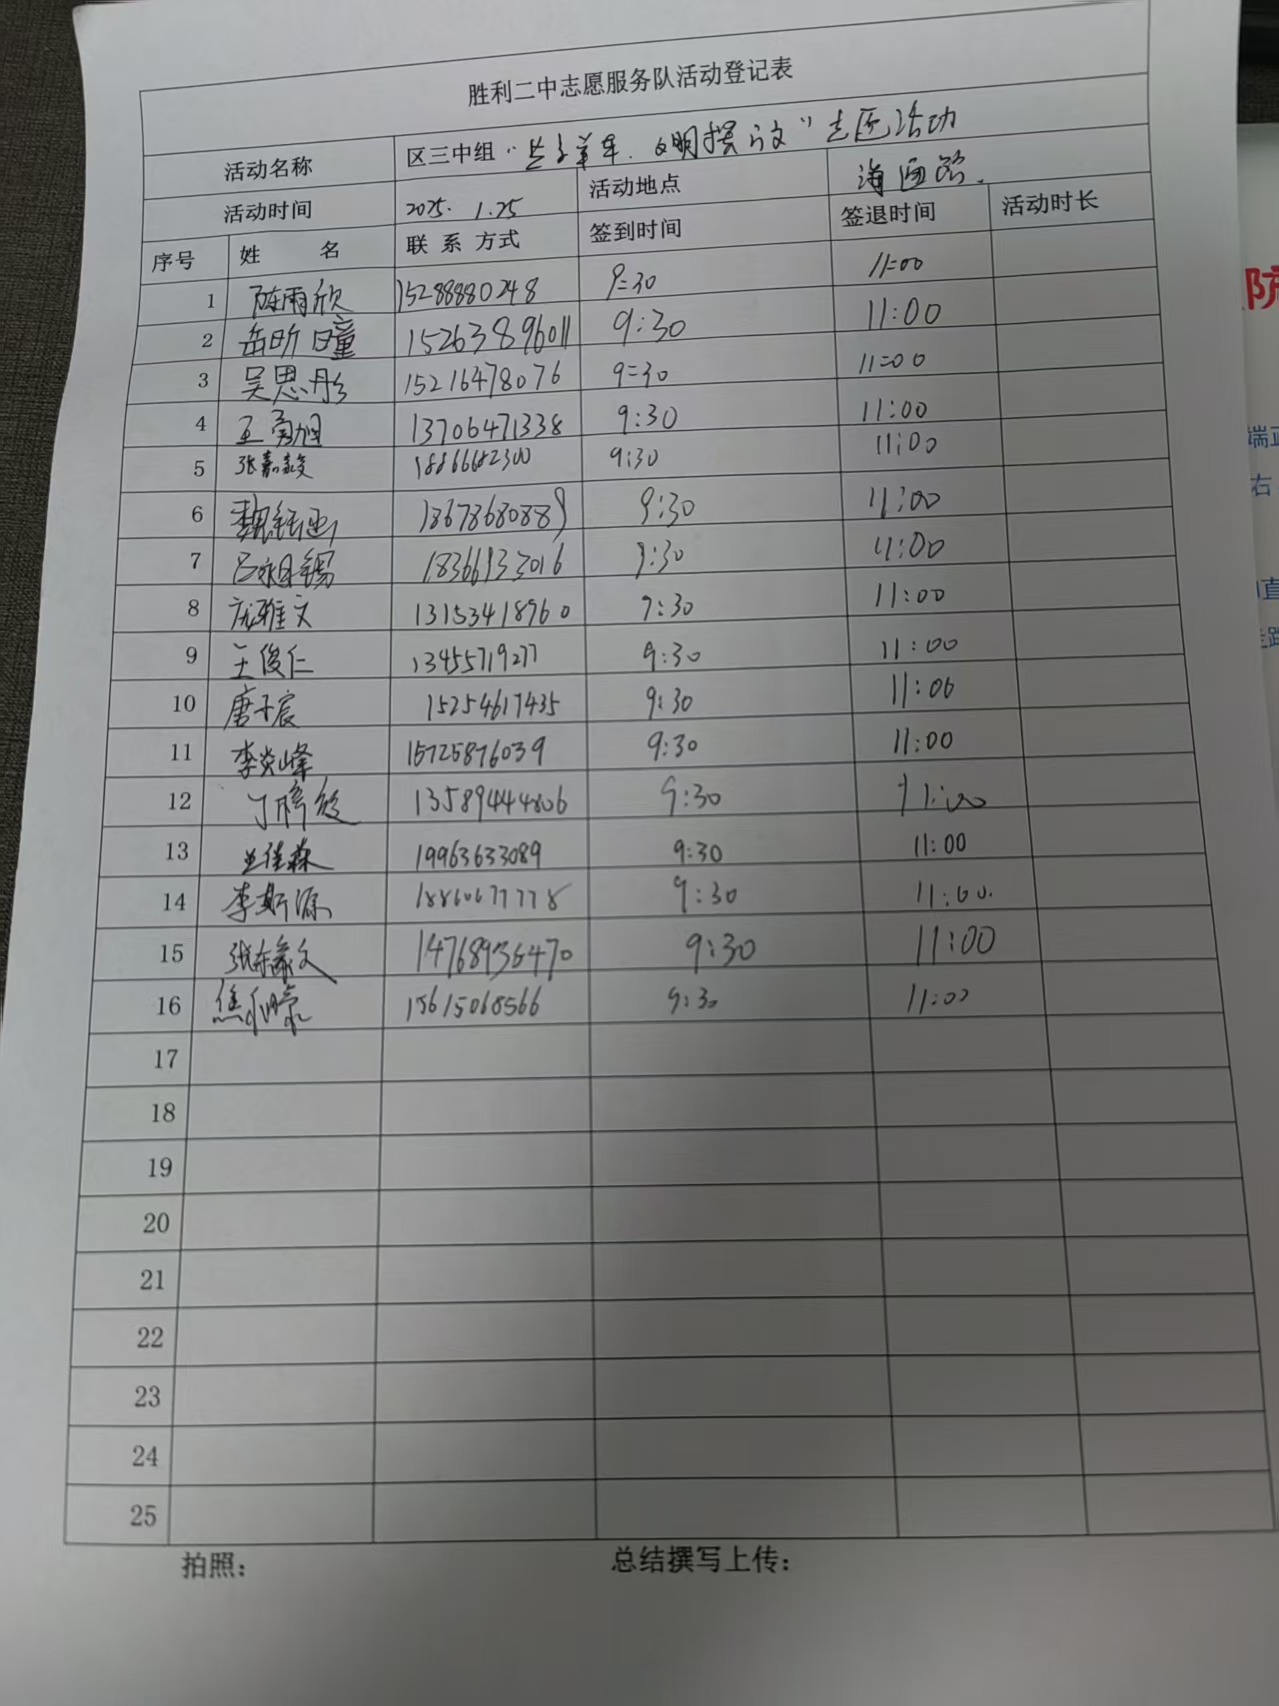 胜利二中志愿服务队活动登记表
活动名称 区三中组"共享单车.文明摆放"志愿活动
活动时间 2025. 1.25 活动地点
序号 姓 名 联系方式 签到时间 签退时间 活动时长
1 陈雨欣 15288880248 9:30 11:00
2 岳昕瞳 15263896011 9:30 11:00
3 吴思彤 15216478076 9:30 11:00
4 13706471338 9:30 11:00
5 张嘉毅 18866682300 9:30 11:00
6 18678680889 9:30 11:00
7 18366933016 9:30 11:00
8 庞雅文 13153418960 9:30 11:00
9 王俊仁 13455719277 9:30 11:00
10 唐子宸 15254617435 9:30 11:00
11 李炎峰 15725876039 9:30 11:00
12 13589444806 9:30 11:00
13 兰佳森 19963633089 9:30 11:00
14 李斯源 18860677778 9:30 11:00.
15 14768936470 9:30 11:00
16 15615068566 9:30 11:00
17
18
19
20
21
22
23
24
25
拍照： 总结撰写上传：
防